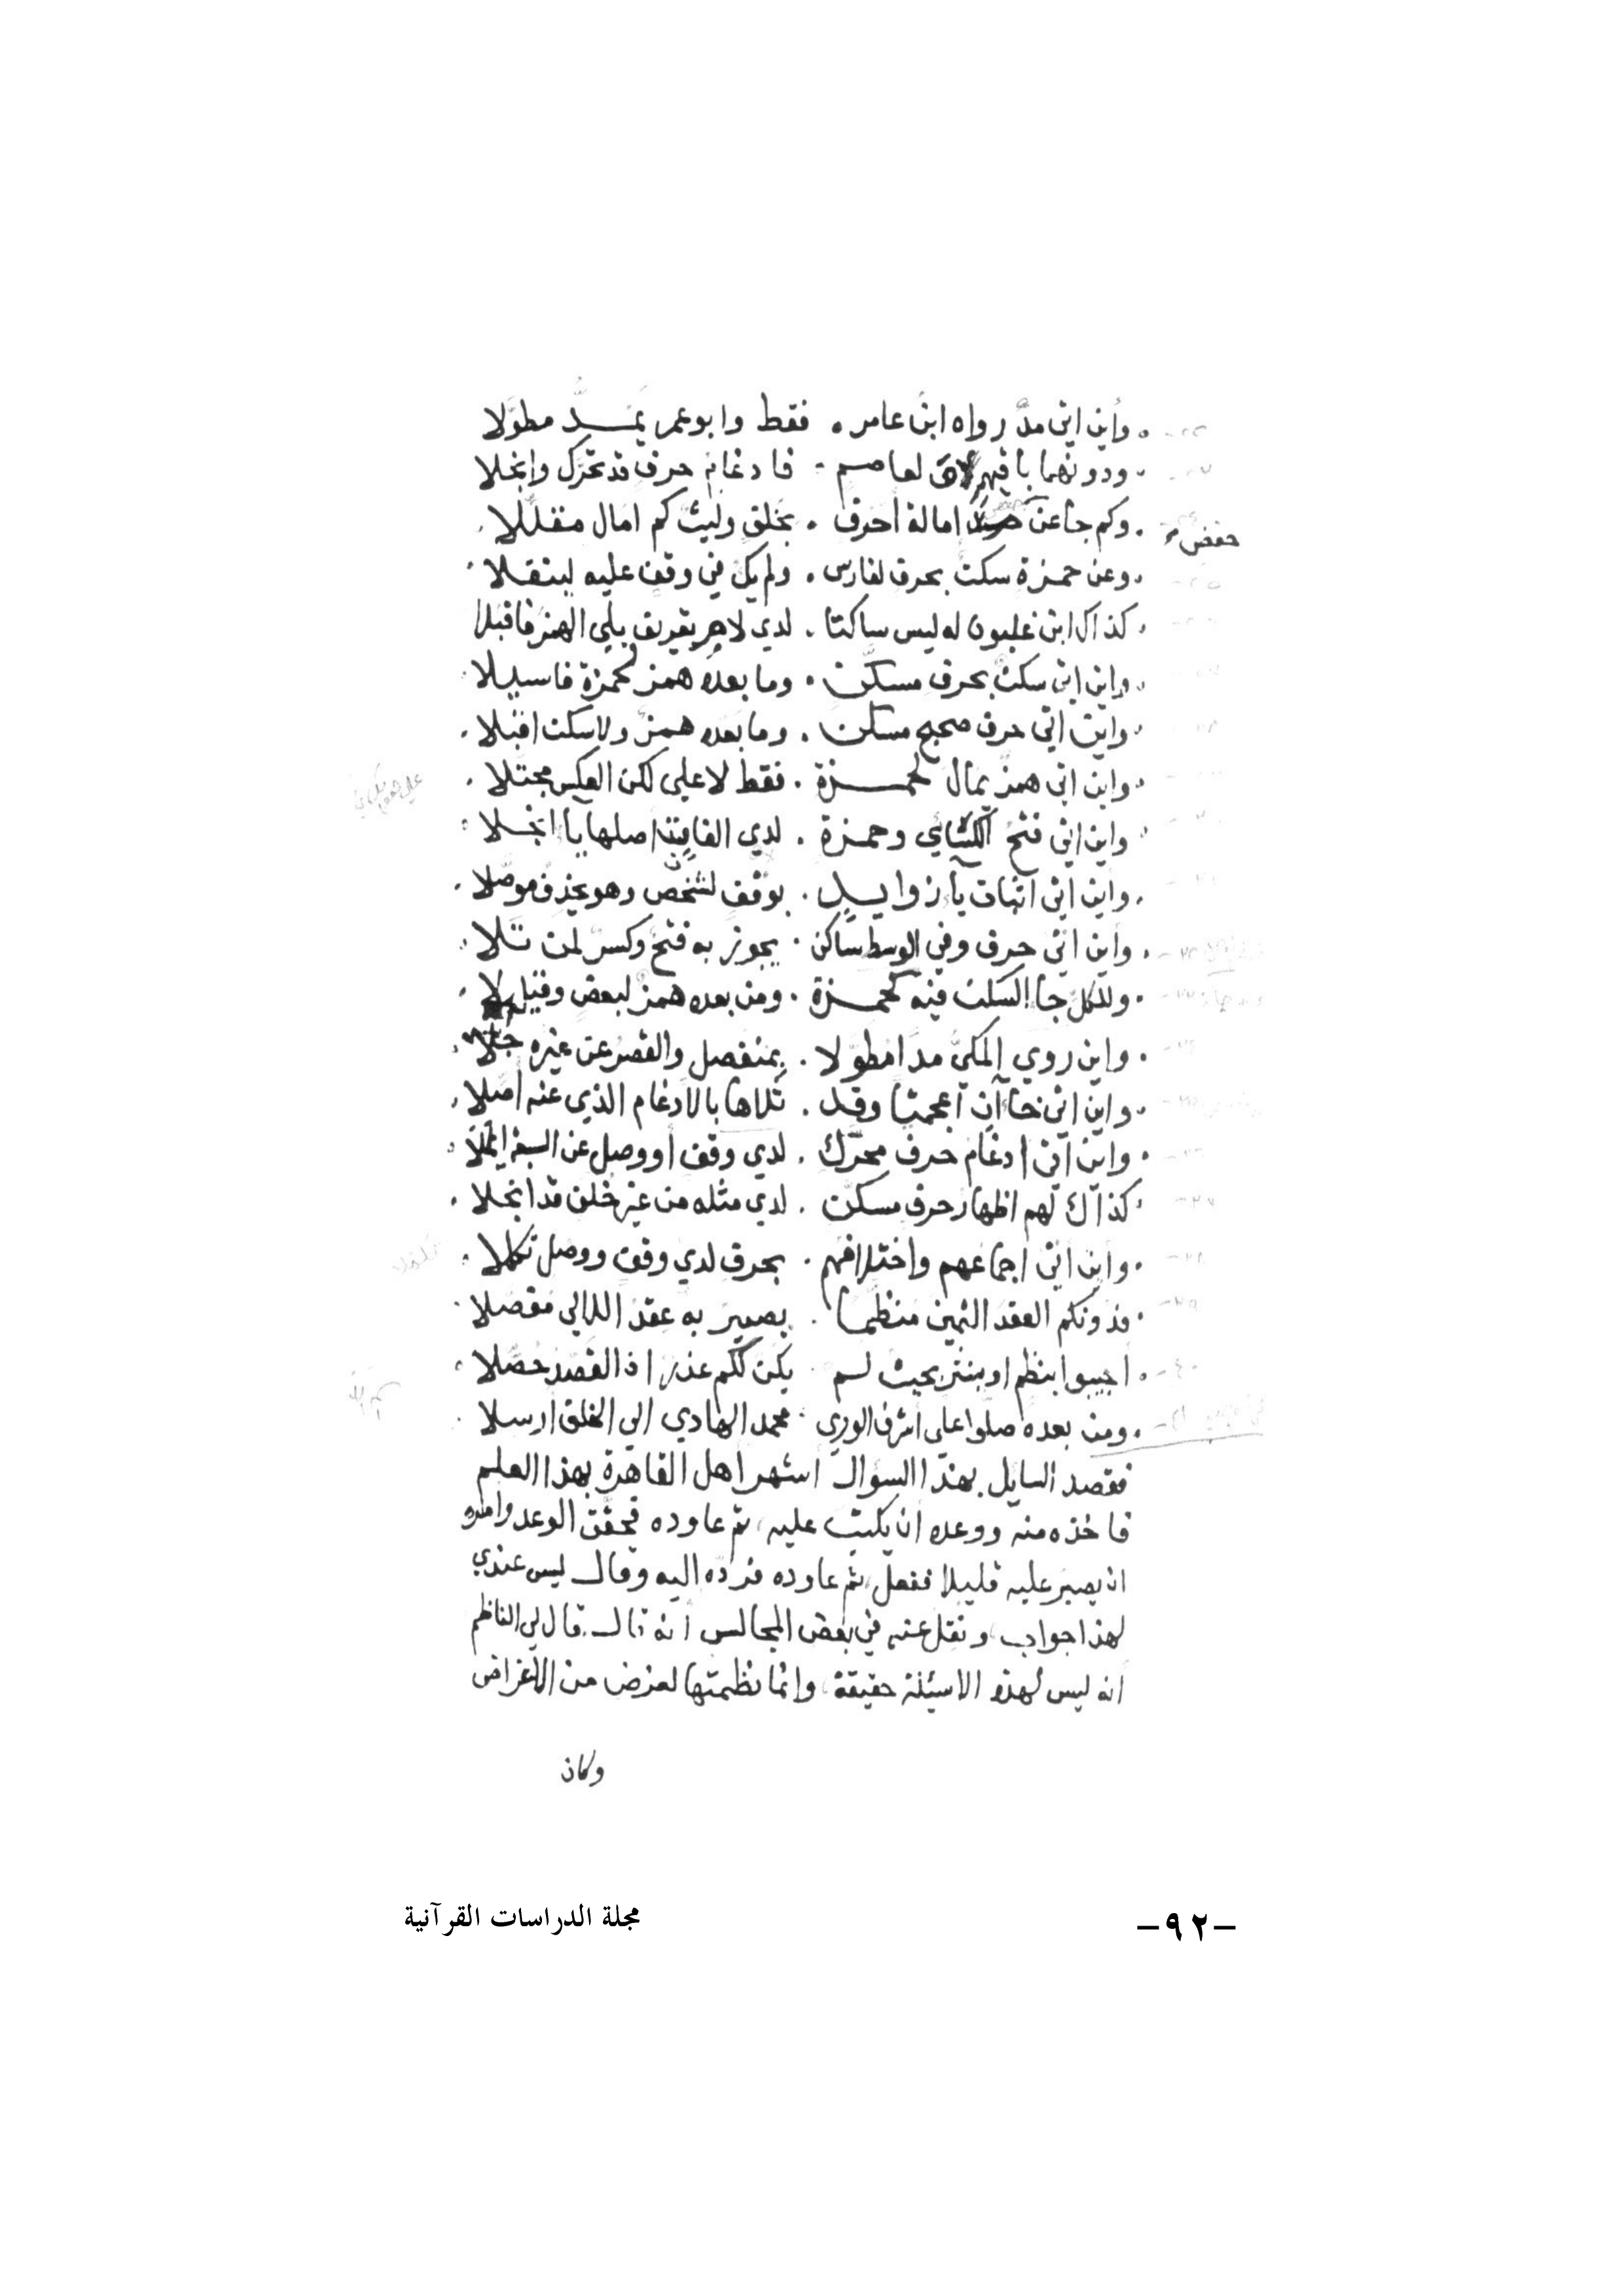 وأين اتى مدّ رواه ابن عامر . فقط وابو عمر يمــدّ مطوّلا
ودونهما باقيهم لعاصم . فادغام حرف قد تحرّك وانجلا
وكم جا عن امالة أحرف . بخلف وليث كم امال مقللا
حفص
وعن حمزة سكت بحرف لفارس . ولم يك في وقف عليه لينقلا
كذاك ابن غلبون له ليس ساكتا . لدي لام تعريف يلي الهمز فاقبلا
واين اتى سكت بحرف مسكّن . وما بعده همز لحمزة فاسـيلا
واين اتى حرف صحيح مسكن . وما بعده همز ولا سكت اقبلا
واين اتى همز يمال لحمزة . فقط لا علي لكن العكس مجتلا
واين اتى فتح الكسائي وحمزة . لدي الف اصلها يا انجلا
واين اتى اثبات يا زوايد . بوقف لشخص وهو يحذف موصلا
واين اتى حرف وفي الوسط ساكن . يجوز به فتح وكسر لمن تلا
وللكل جا السكت فيه كحمزة . ومن بعده همز لبعض
واين روي المكي مدا مطولا . بمنفصل والقصر عن غيره جلا
واين اتى خاآن اعجمتا وقد . تلاها بالادغام الذي عنه اصلا
واين اتى ادغام حرف محرّك . لدي وقف أو وصل عن السبع
كذاك لهم اظهار حرف مسكن . لدي مثله من غير خلف قد انجلا
واين اتى اجماعهم واختلافهم . بحرف لدي وقف ووصل تكملا
فدونكم العقد الثمين منظما . يصير به عقد اللالي مفصلا
اجيبوا بنظم او بنثر بحيث لم . يكن لكم عذر اذ القصد حصّلا
ومن بعده صلوا علي اشرف الوري . محمد الهادي الي الخلق ارسلا
فقصد السايل بهذا السؤال اشهر اهل القاهرة بهذا العلم
فاخذه منه ووعده ان يكتب عليه ثم عاوده فحقق الوعد وامره
ان يصبر عليه قليلا ففعل ثم عاوده فرده اليه وقال ليس عندي
لهذا جواب ونقل عنه في بعض المجالس انه قال قال لي الناظم
انه ليس لهذه الاسئلة حقيقة وانما نظمتها لغرض من الاغراض
وكان
مجلة الدراسات القرآنية
-٩٢-